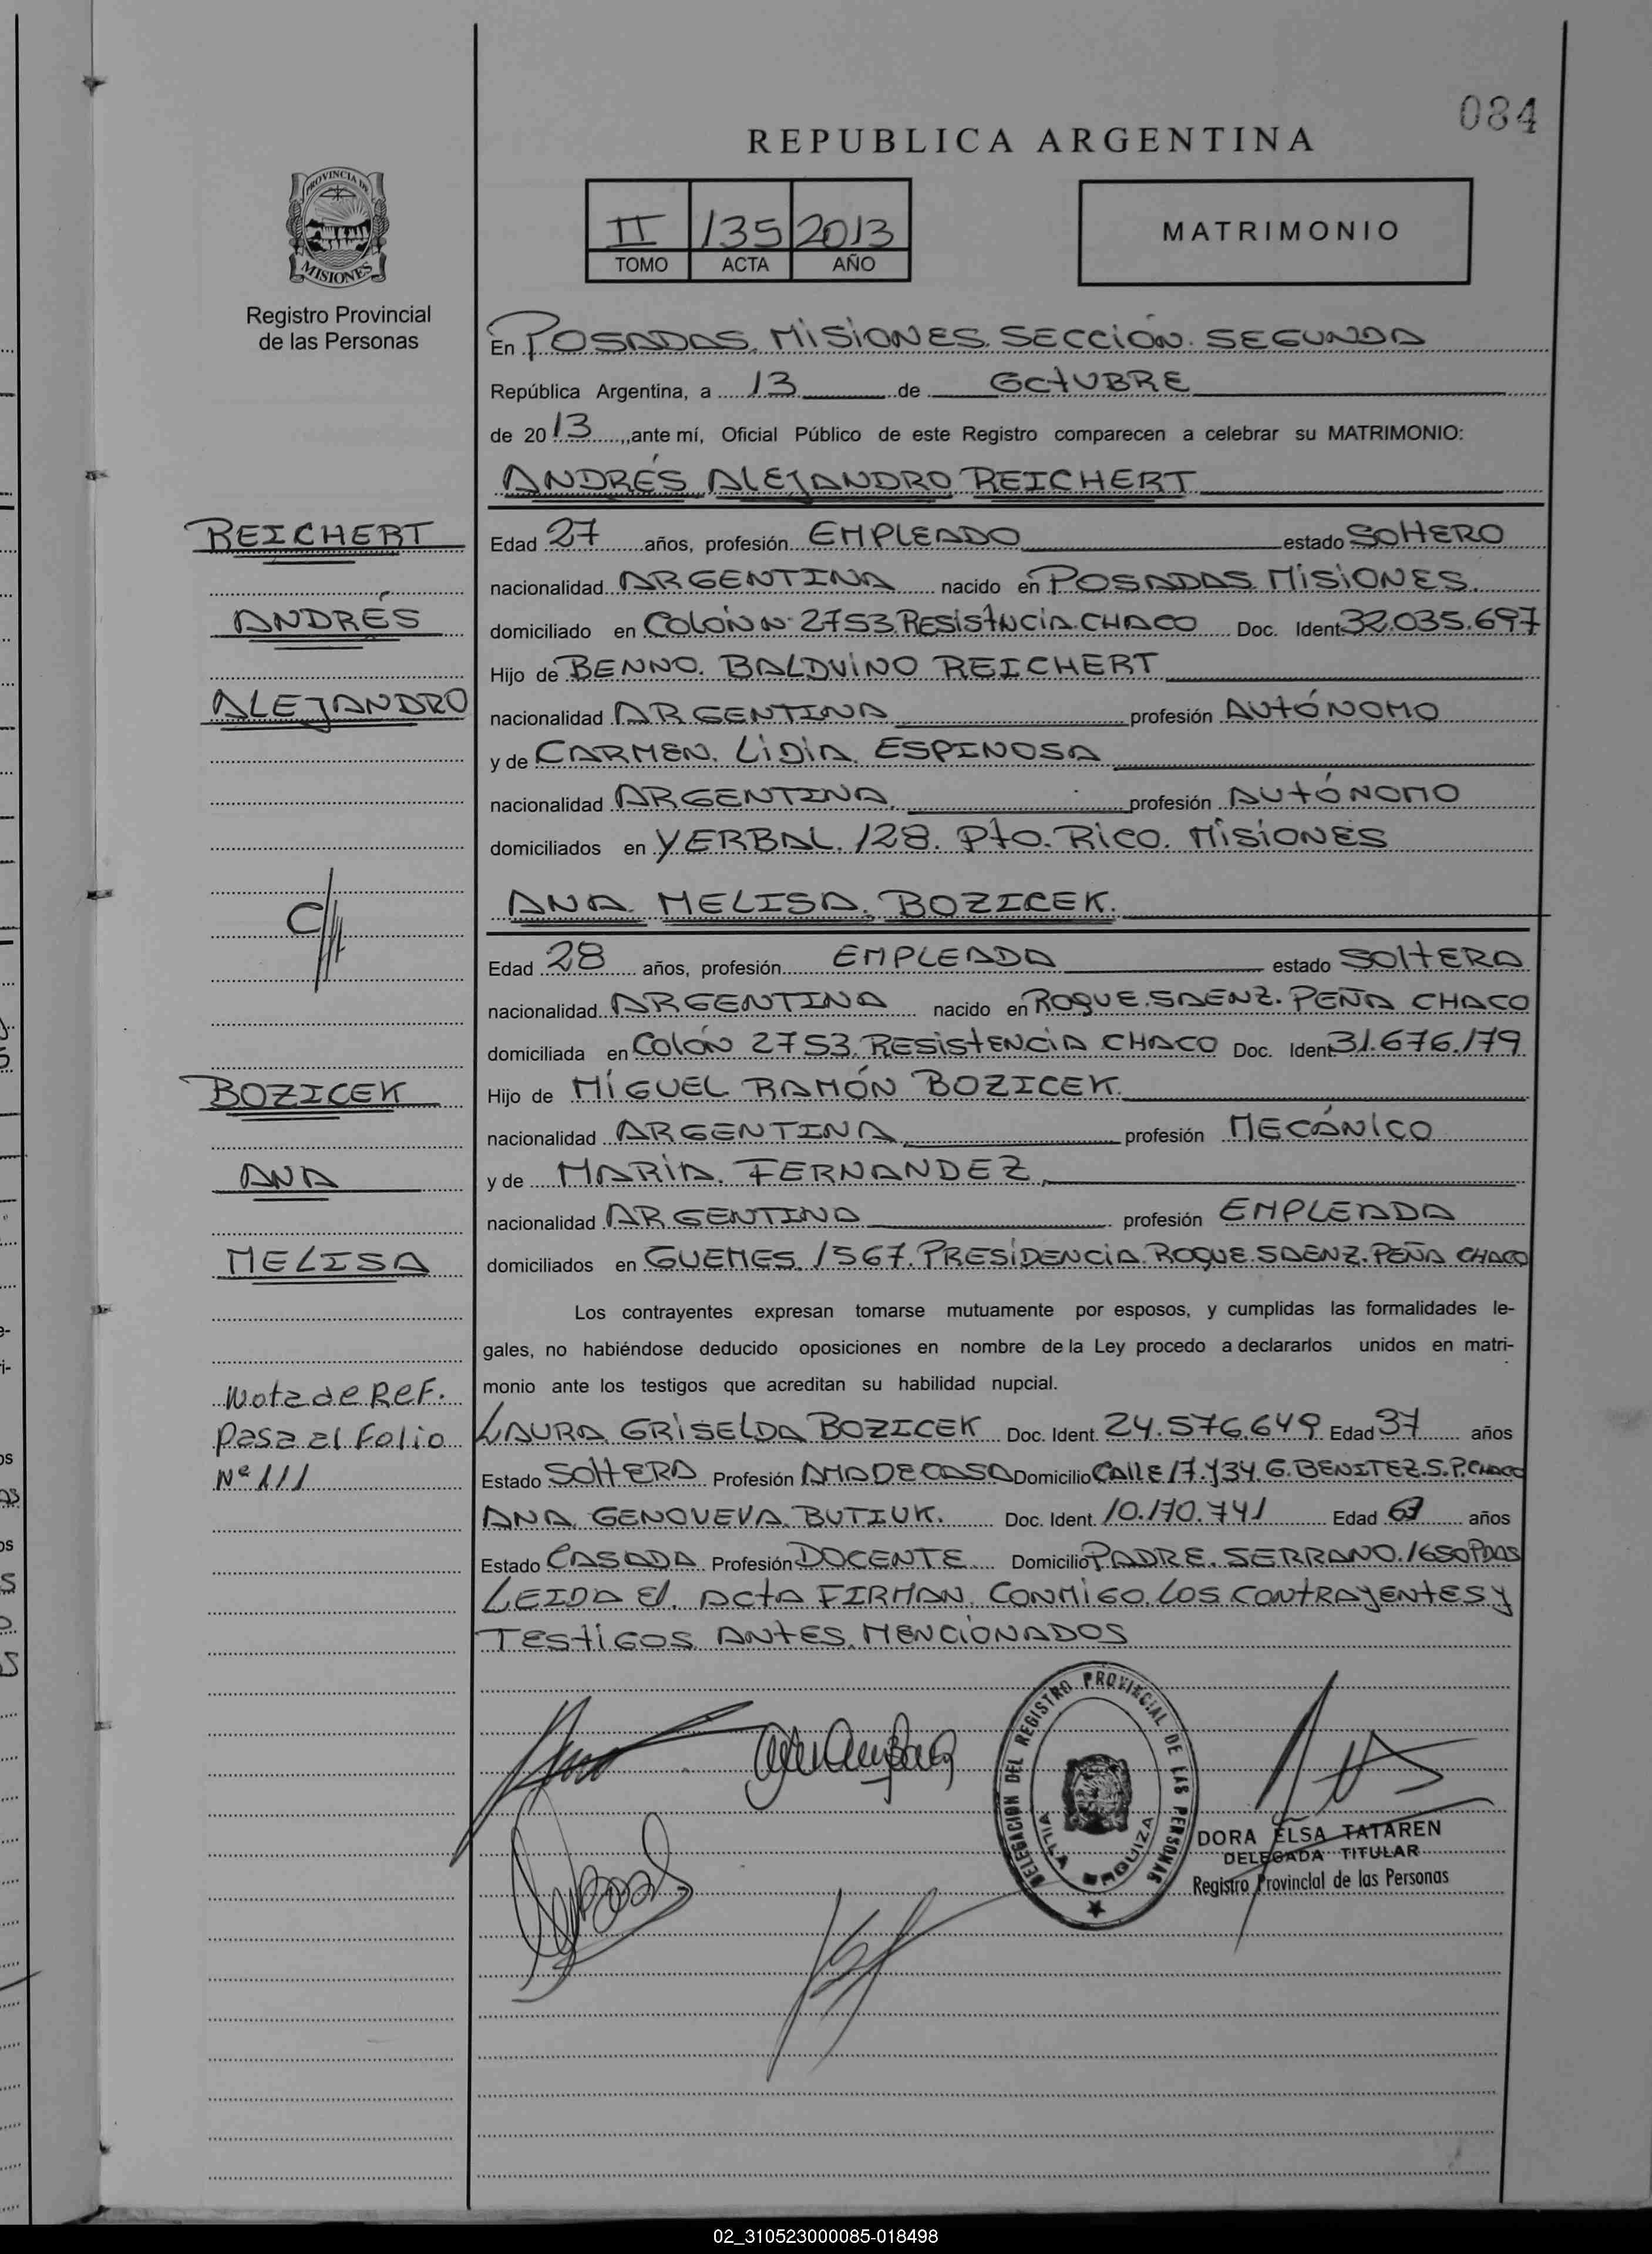 084
REPUBLICA ARGENTINA
PROVINCIA DE
MISIONES
II 135 2013
TOMO ACTA AÑO
MATRIMONIO
Registro Provincial
de las Personas
En POSADAS. MISIONES. SECCIÓN. SEGUNDA
República Argentina, a 13 de OCTUBRE
de 2013, ante mí, Oficial Público de este Registro comparecen a celebrar su MATRIMONIO:
ANDRÉS ALEJANDRO REICHERT
REICHERT
Edad 27 años, profesión EMPLEADO estado SOLTERO
nacionalidad ARGENTINA nacido en POSADAS MISIONES.
ANDRÉS
domiciliado en COLÓN Nº 2753. RESISTNCIA. CHACO Doc. Ident 32.035.697
Hijo de BENNO. BALDUINO REICHERT
ALEJANDRO
nacionalidad ARGENTINA profesión AUTÓNOMO
y de CARMEN. LIDIA. ESPINOSA
nacionalidad ARGENTINA. profesión AUTÓNOMO
domiciliados en YERBAL. 128. PTO. RICO. MISIONES
ANA. MELISA. BOZICEK.
Edad 28 años, profesión EMPLEADA estado SOLTERA
nacionalidad ARGENTINA nacido en ROQUE. SAENZ. PEÑA CHACO
domiciliada en COLÓN 2753. RESISTENCIA CHACO Doc. Ident 31.676.179
BOZICEK
Hijo de MIGUEL RAMÓN BOZICEK.
nacionalidad ARGENTINA profesión MECÁNICO
ANA
y de MARÍA. FERNANDEZ
nacionalidad ARGENTINA profesión EMPLEADA
MELISA
domiciliados en GUEMES. 1567. PRESIDENCIA. ROQUE. SAENZ. PEÑA CHACO
Los contrayentes expresan tomarse mutuamente por esposos, y cumplidas las formalidades le-
gales, no habiéndose deducido oposiciones en nombre de la Ley procedo a declararlos unidos en matri-
monio ante los testigos que acreditan su habilidad nupcial.
Nota de Ref.
Pasa al Folio
Nº 111
LAURA GRISELDA BOZICEK Doc. Ident. 24.576.649 Edad 37 años
Estado SOLTERA Profesión AMA DE CASA Domicilio CALLE 17. Y 34 G. BENITEZ. S.P. CHACO
ANA GENOVEVA. BUTIUK. Doc. Ident. 10.170.741 Edad años
Estado CASADA Profesión DOCENTE Domicilio PADRE. SERRANO. 1650 PDAS
LEIDA EL ACTA FIRMAN. CONMIGO. LOS CONTRAYENTES Y
TESTIGOS ANTES. MENCIONADOS
DELEGACIÓN DEL REGISTRO PROVINCIAL DE LAS PERSONAS
VILLA URQUIZA
DORA ELSA TATAREN
DELEGADA TITULAR
Registro Provincial de las Personas
02_310523000085-018498